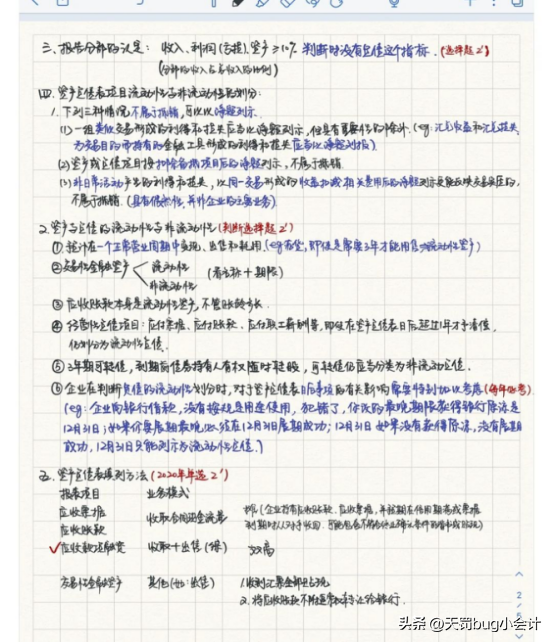 三、报告分部的认定：收入、利润(亏损)、资产≥10% 判断时没有负债这个指标.(选择题2')
(分部的收入占总收入的比例)
四、资产负债表项目流动性与非流动性的划分：
1.下列三种情况不属于抵销,可以以净额列示.
(1)一组类似交易形成的利得和损失应当以净额列示,但具有重要性的除外.(eg:汇兑收益和汇兑损失,
为交易目的而持有的金融工具形成的利得和损失应当以净额列报)
(2)资产或负债项目按扣除备抵项目后的净额列示,不属于抵销.
(3)非日常活动产生的利得和损失,以同一交易形成的收益扣减相关费用后的净额列示更能反映交易实质的,
不属于抵销.(具有偶然性,并非企业的主要业务)
2.资产与负债的流动性与非流动性(判断选择题2')
①预计在一个正常营业周期中变现、出售和耗用.(eg白酒,即使是需要3年才能用售为流动性资产)
②交易性金融资产 流动性
非流动性 (看目标+期限)
③应收账款本身是流动性资产,不管账龄多长.
④经营性负债项目:应付票据、应付账款、应付职工薪酬等,即使在资产负债表日后超过1年才予清偿,
仍划分为流动性负债.
⑤3年期可转债,到期前债券持有人有权随时转股,可转债仍应当分类为非流动负债.
⑥企业在判断负债的流动性划分时,对于资产负债表日后事项的有关影响需要特别加以考虑(每年必考)
(eg:企业向银行借款,没有按规定用途使用,犯错了,你改的最晚期限获得银行原谅是
12月31日;如果你要展期最晚必须在12月31日展期成功;12月31日如果没有获得原谅,没有展期
成功,12月31日只能列示为流动性负债.)
五、资产负债表填列方法(2020年单选2')
报表项目 业务模式
应收票据
应收账款 收取合同现金流量
例:(企业持有应收账款、应收票据,并按期在信用期满或票据
到期时收回
✓应收款项融资 收取+出售(保) 双高
交易性金融资产 其他(如:出售) 1.收到汇票全部贴现
2.将应收账款不附追索权转让给银行.
2
5
头条 @天罚bug小会计